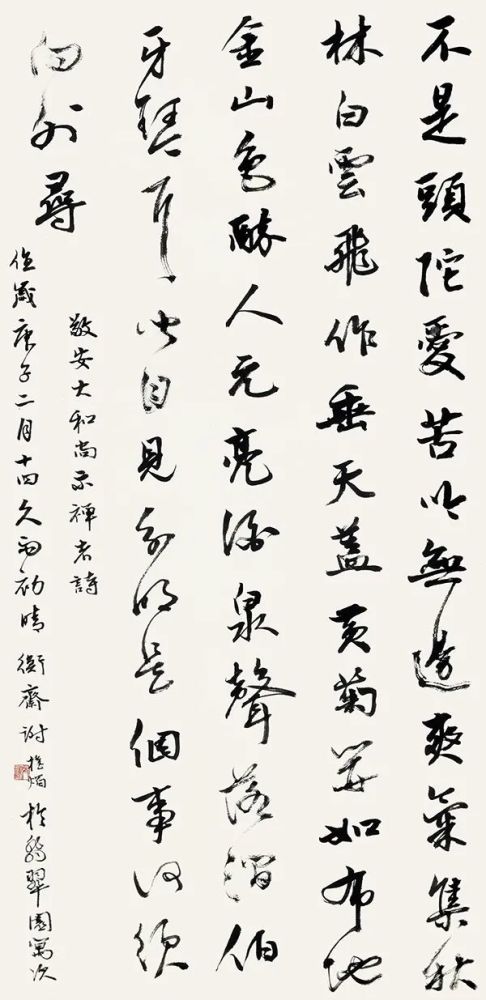 不是頭陀愛苦吟無邊爽氣集秋
林白雲飛作垂天蓋黃菊開如布地
金山色醉人元亮酒泉聲落澗伯
牙琴耳聞目見分明是個事何須
向外尋
敬安大和尚示禪者詩
歲庚子二月十四久雨初晴 衡齋謝 於翠園寓次